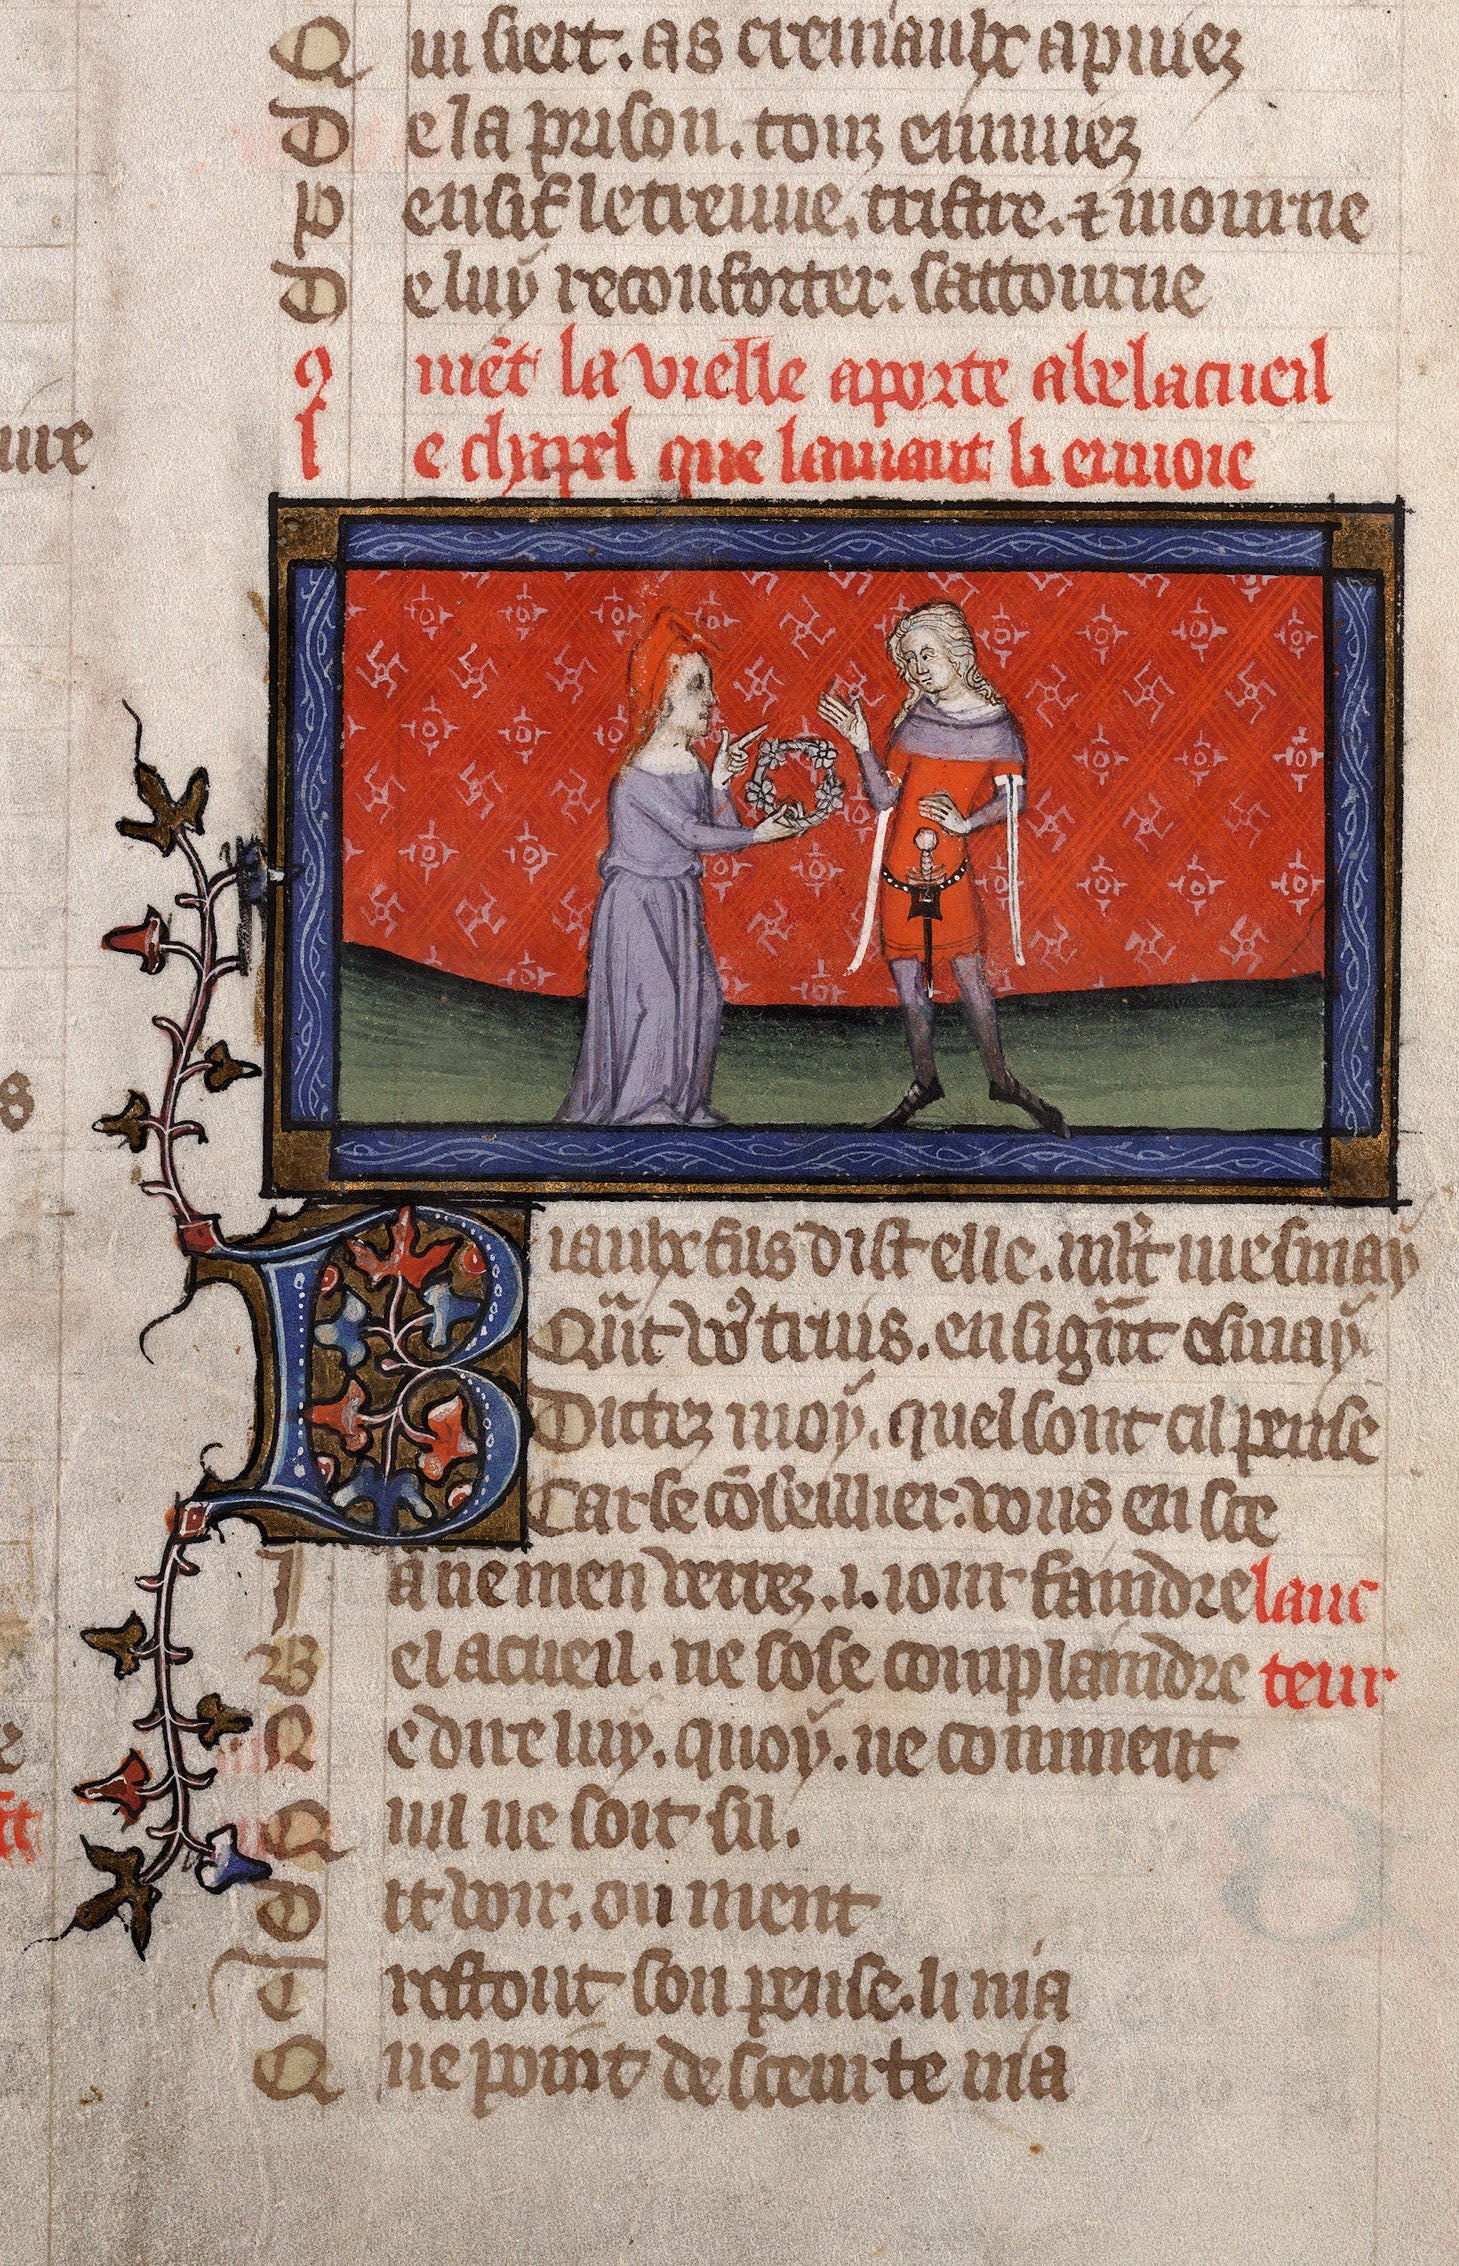 Qui siert. as creniaulx apuiez
De la prison. touz ennuiez
Pensif le treuue. tristre. ⁊ mourne
De luy reconforter. sattourne
9mēt la vielle aporte a belacueil
le chapel que lamant li enuoie
Biaulx filz dist elle. ml't mesmay
Qūt vo9 truis. en si gūt esmay
Dictez moy. quel sont cil pense
Car se cōseillier. vous en sce
Ja ne men verrez. i. iour faindre lauc
Belacueil. ne sose complaindre teur
Ne dire luy. quoy. ne comment
Quil ne soit sil.
dit voir. ou ment
Trestout son pense. li nia
Que point de sceurte nia